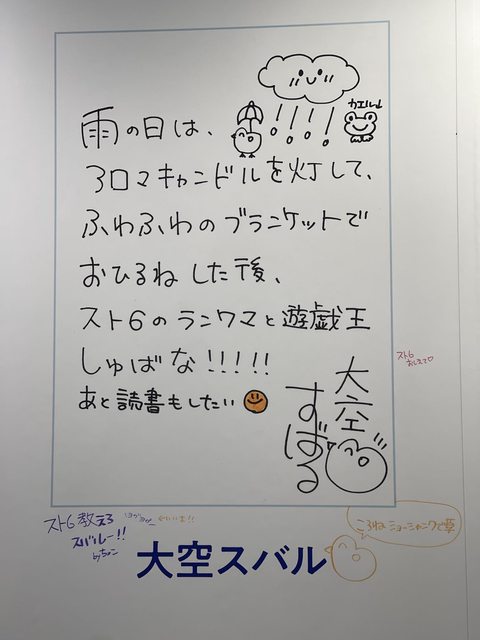 カエルル
雨の日は、
アロマキャンドルを灯して、
ふわふわのブランケットで
おひるねした後、
スト6のランクマと遊戯王
しゅばな!!!!!
あと読書もしたい
大空
すばる
スト6
おしえて♡
スト6教えろ
スバルー!!
byちょこ
ころねショーシャンクで草
大空スバル